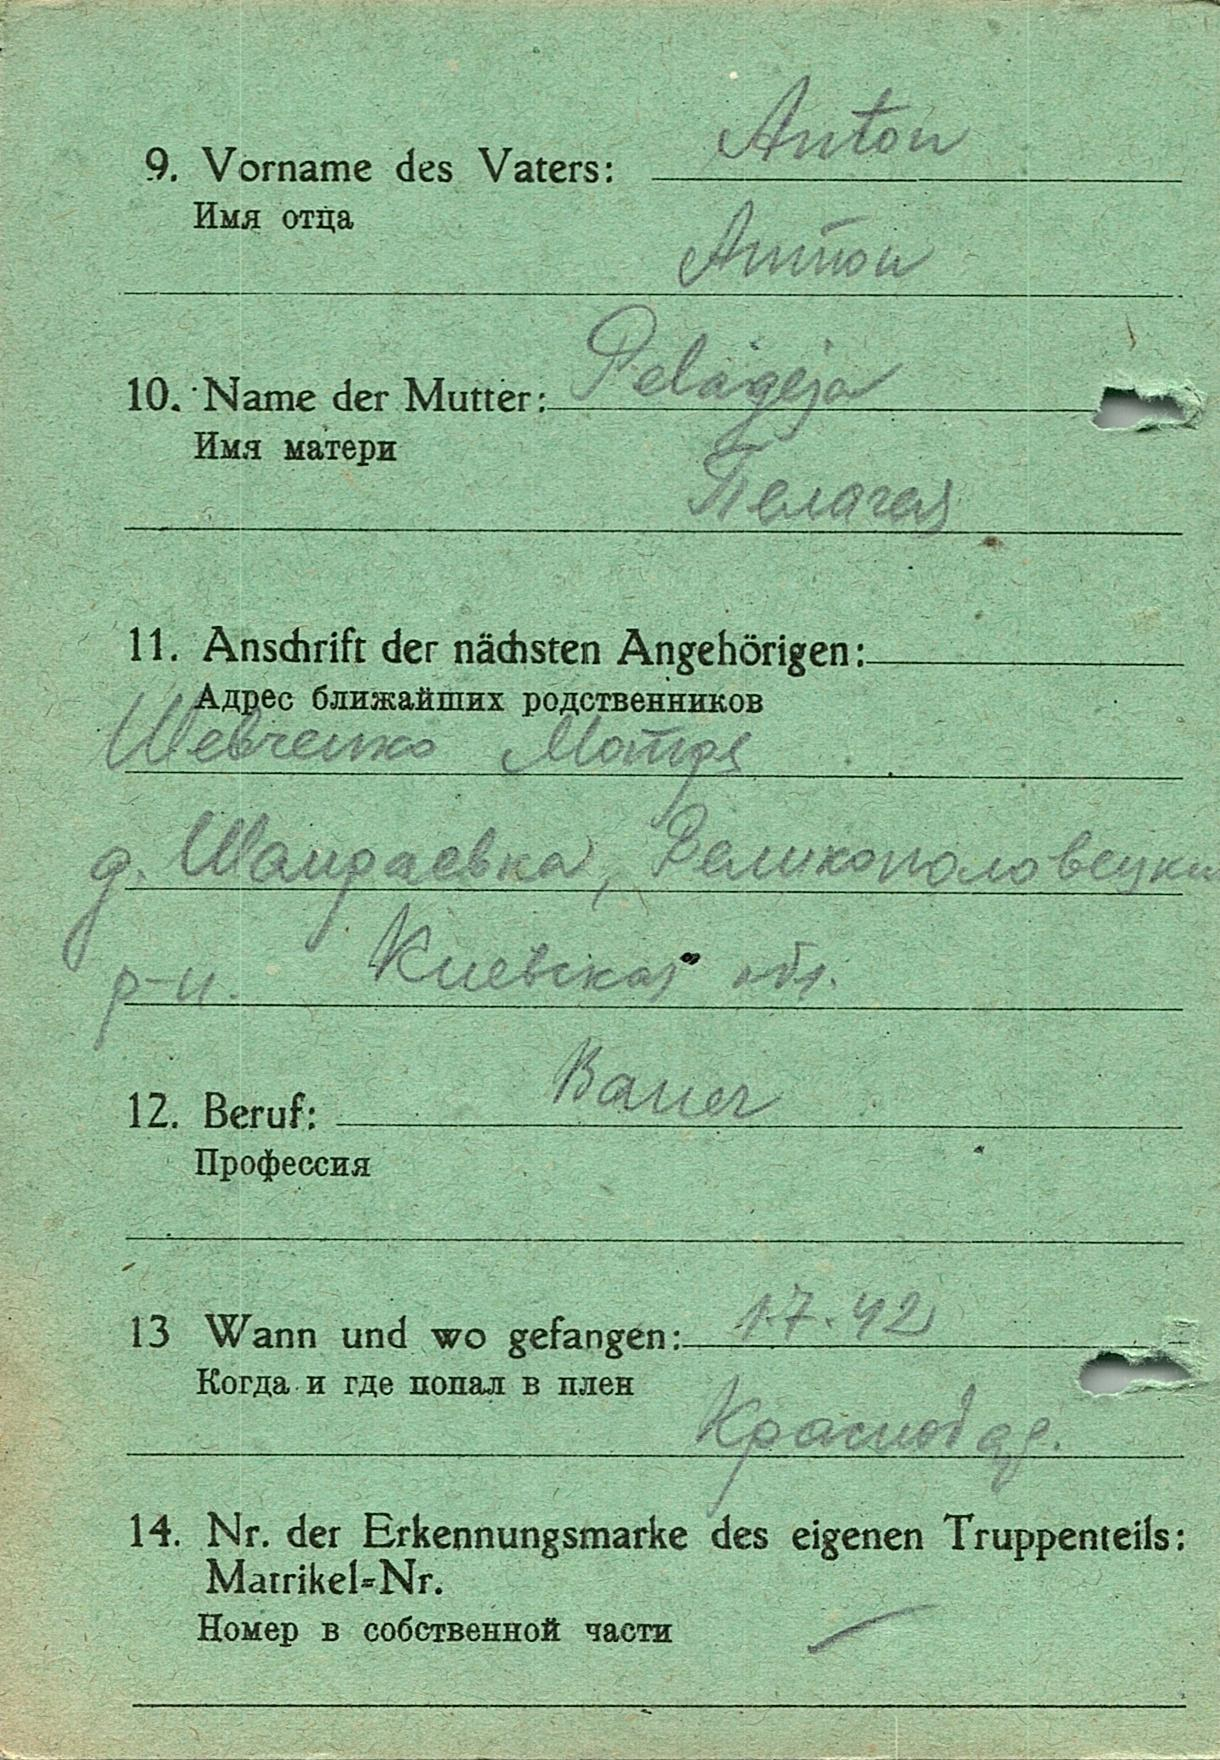 9. Vorname des Vaters: Anton
Имя отца
Антон
10. Name der Mutter: Pelageja
Имя матери
Пелагея
11. Anschrift der nächsten Angehörigen:
Адрес ближайших родственников
Шевченко Мотря
д. Шандраевка, Великополовецкий
р-н. Киевская обл.
12. Beruf: Bauer
Профессия
13 Wann und wo gefangen: 1.7.42
Когда и где попал в плен
Краснодар.
14. Nr. der Erkennungsmarke des eigenen Truppenteils:
Matrikel=Nr.
Номер в собственной части —